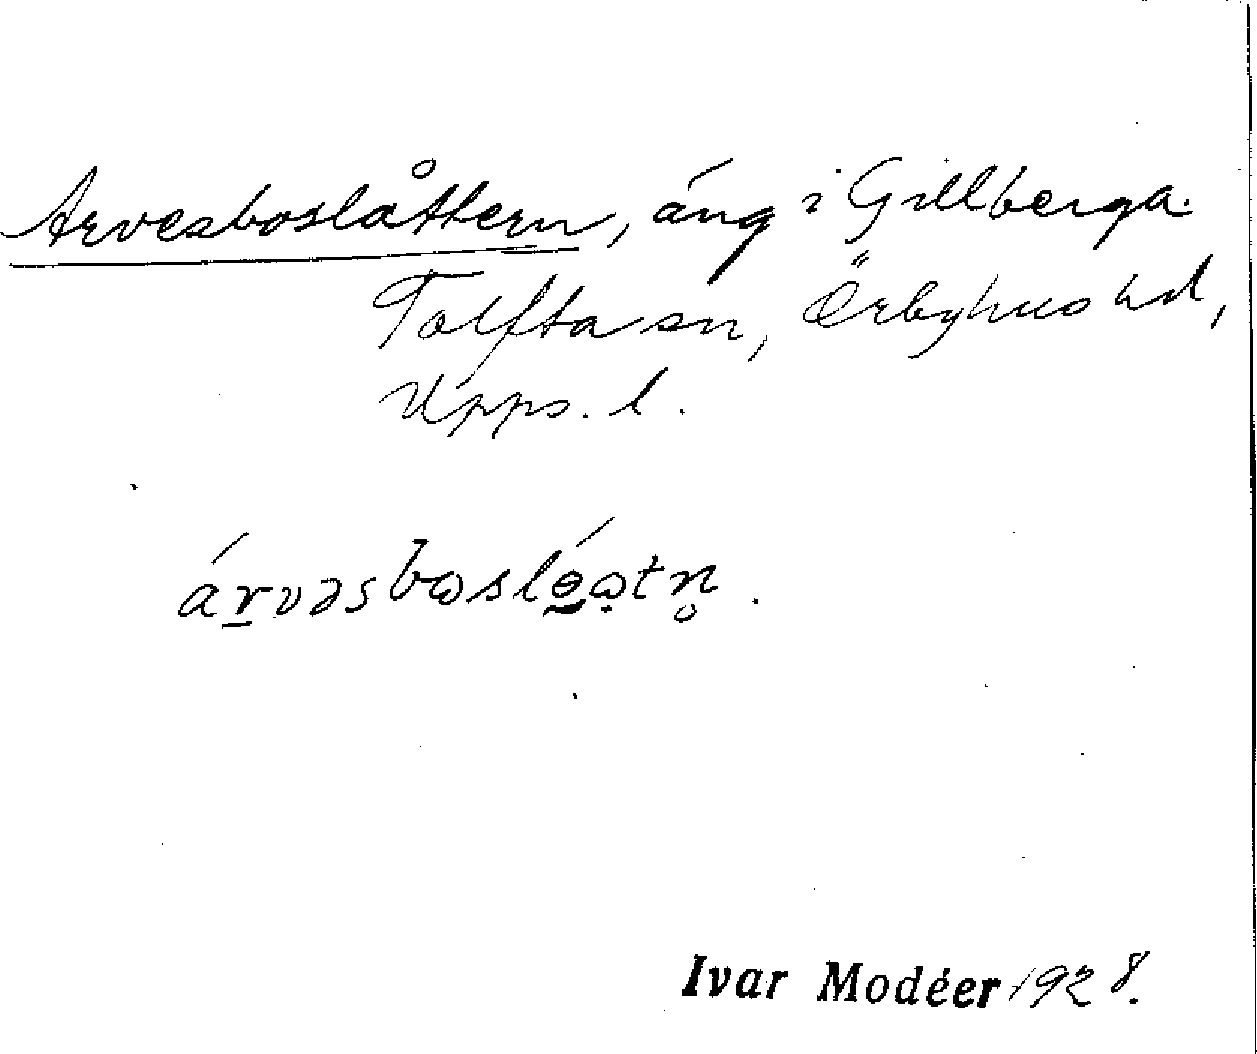 Arvesboslåttern, äng i Gillberga.
Tolfta sn, Örbyhus hd,
Upps. l.
árvəsbωslé̱ω̣tn̥.
Ivar Modéer 1928.